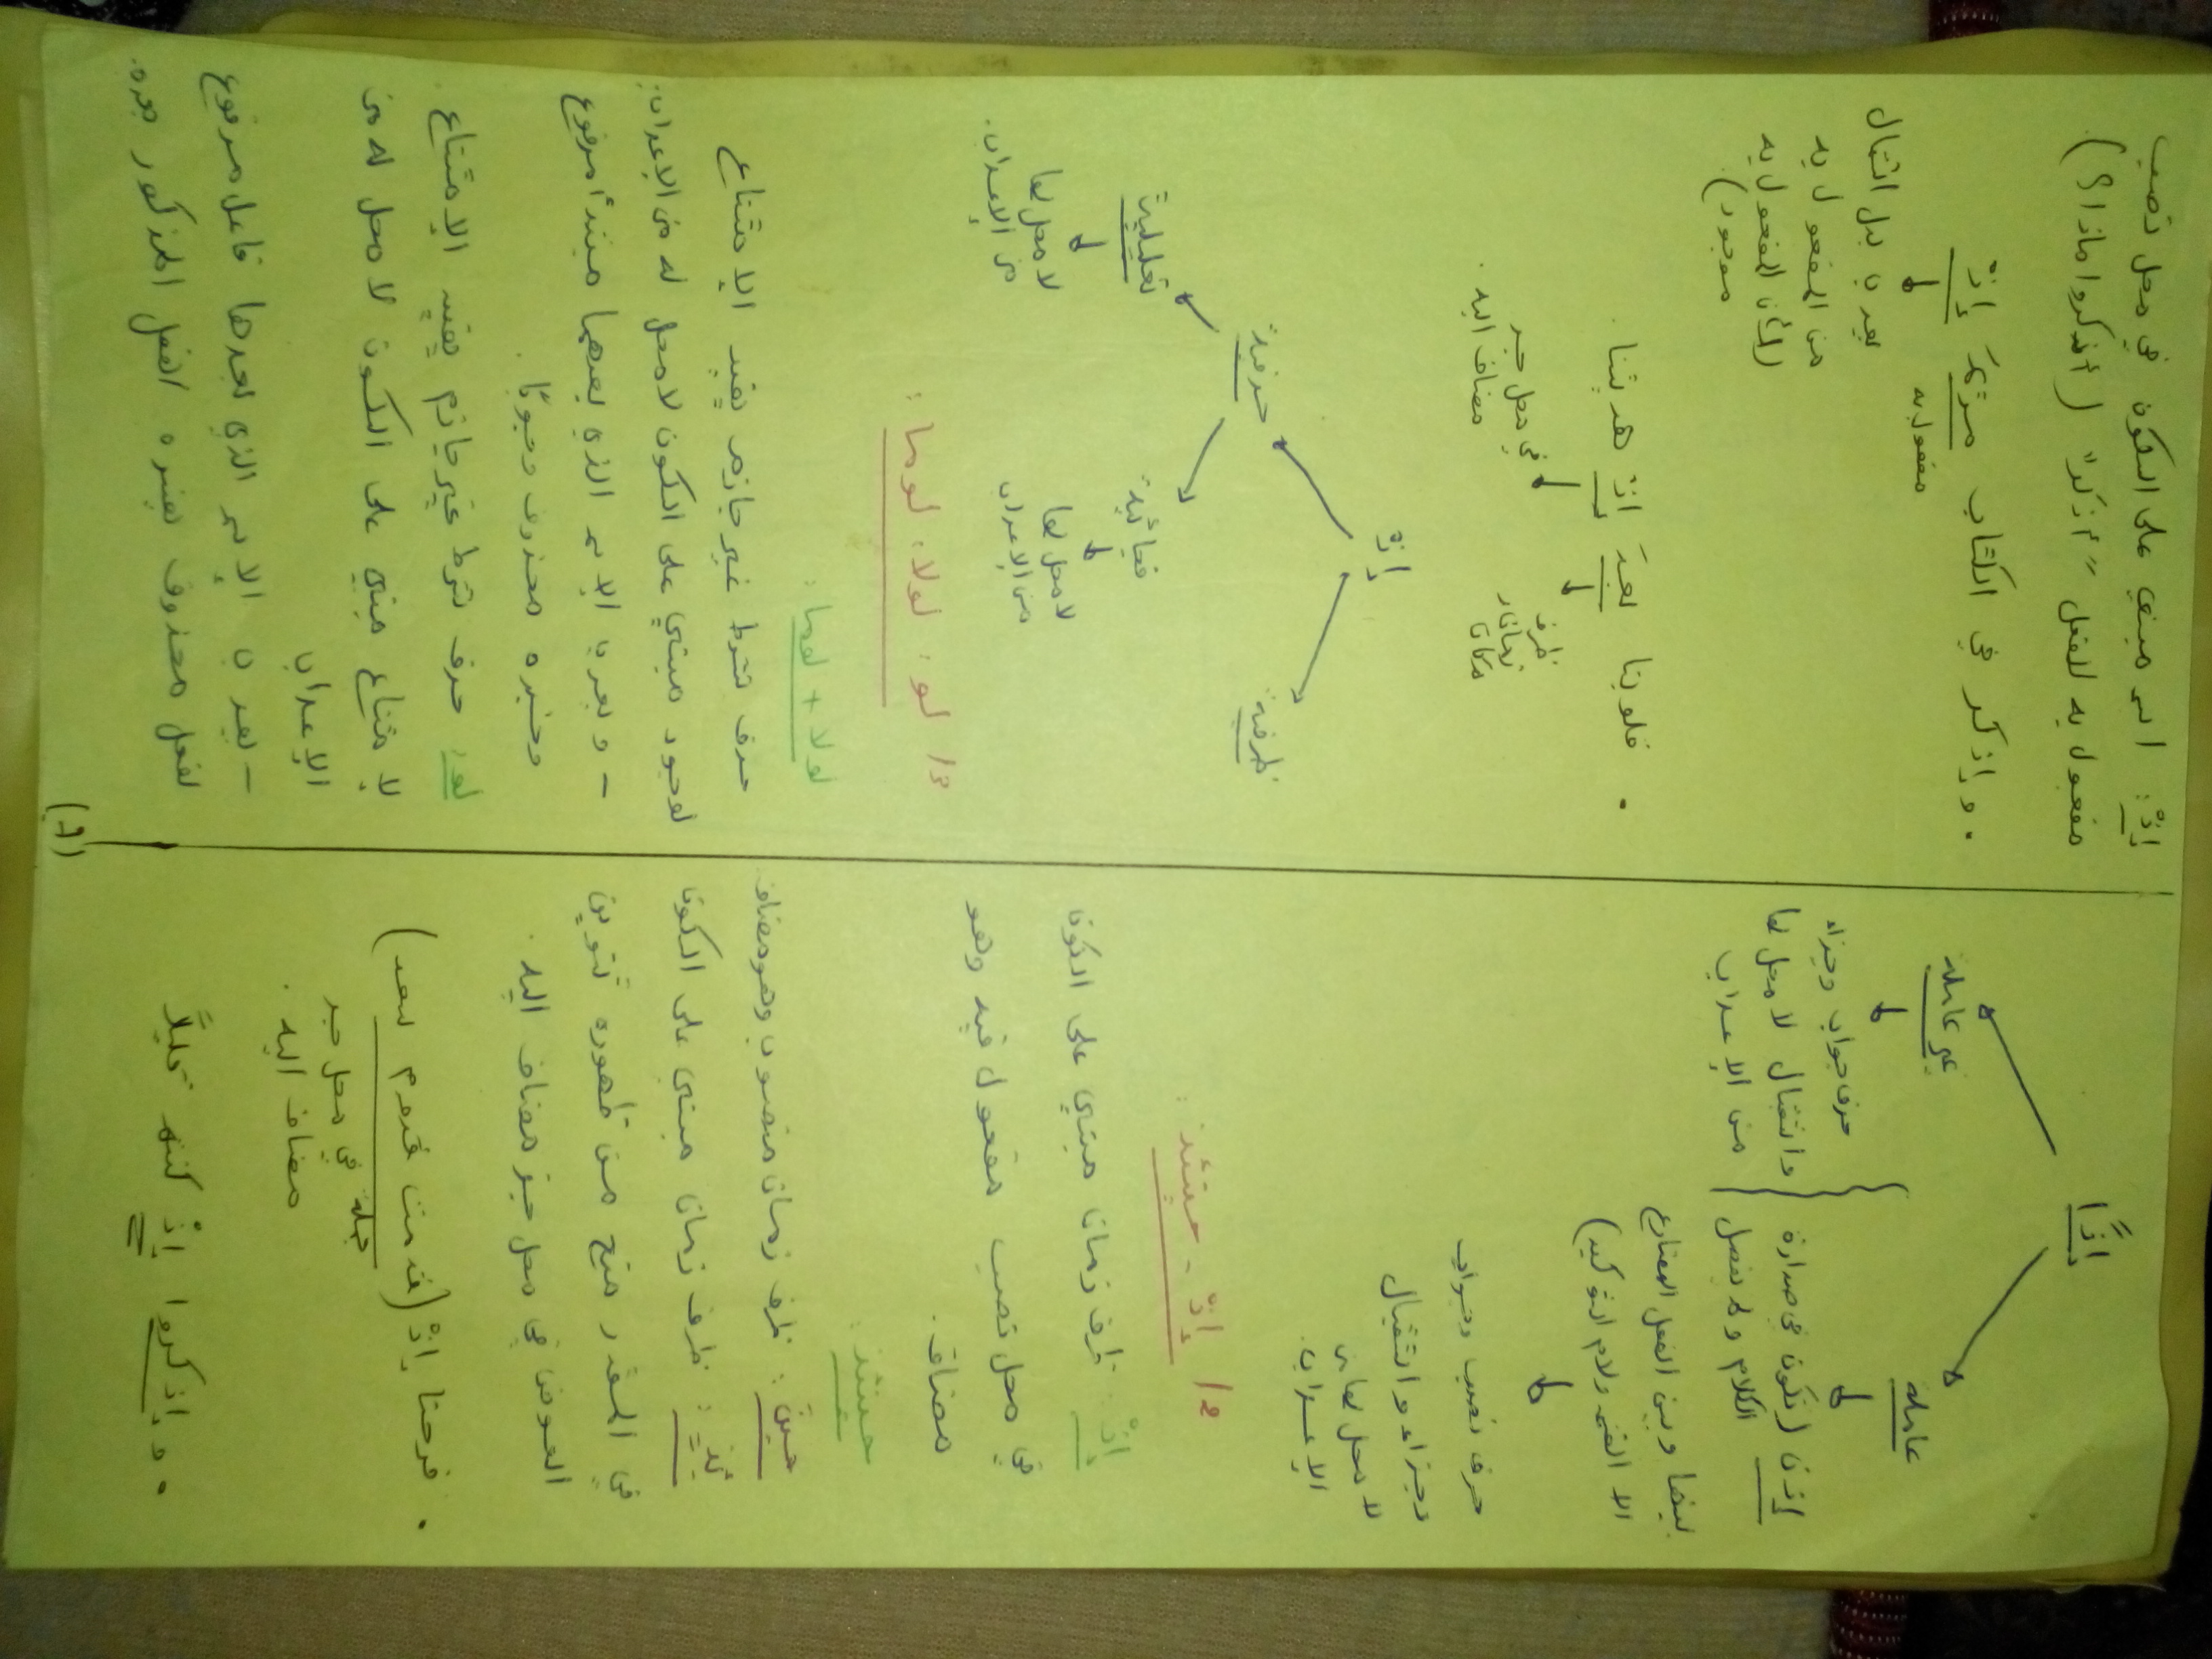 إذًا
عاملة
غير عاملة
إذن (تكون في صدارة
الكلام ولا يفصل
بينها وبين الفعل المضارع
إلا القسم ولام التوكيد)
حرف نصب وجواب
وجزاء واستقبال
لا محل لها من
الإعراب.
حرف جواب وجزاء
واستقبال لا محل لها
من الإعراب
12 إذْ - حينئذ:
إذْ: ظرف زمان مبني على السكون
في محل نصب مفعول فيه وهو
مضاف.
حينئذ:
حينَ: ظرف زمان منصوب وهو مضاف.
ئذٍ: ظرف زمان مبني على السكون
في المقدر منع من ظهوره تنوين
العوض في محل جر مضاف إليه.
• فرحنا إذْ (قدمت قدوم سعد)
جملة في محل جر
مضاف إليه.
• واذكروا إذْ كنتم قليلًا
إذْ: اسم مبني على السكون في محل نصب
مفعول به للفعل "اذكر" (اذكروا ماذا؟)
• واذكر في الكتاب مريمَ إذْ
مفعول به
يعرب بدل اشتمال
من المفعول به
(لأن المفعول به
موجود).
• قلوبنا بعدَ إذْ هديتنا.
ظرف
زمان
مكان
في محل جر
مضاف إليه.
إذْ
ظرفية
حرفية
فجائية
لا محل لها
من الإعراب
تعليلية
لا محل لها
من الإعراب.
13 لو، لولا، لوما:
لولا + لوما:
حرف شرط غير جازم يفيد الامتناع
لوجود مبني على السكون لا محل له من الإعراب.
- ويعرب الاسم الذي بعدهما مبتدأ مرفوع
وخبره محذوف وجوبًا.
لو: حرف شرط غير جازم يفيد الامتناع
لامتناع مبني على السكون لا محل له من
الإعراب
- يعرب الاسم الذي بعدها فاعل مرفوع
لفعل محذوف يفسره الفعل المذكور بعده.